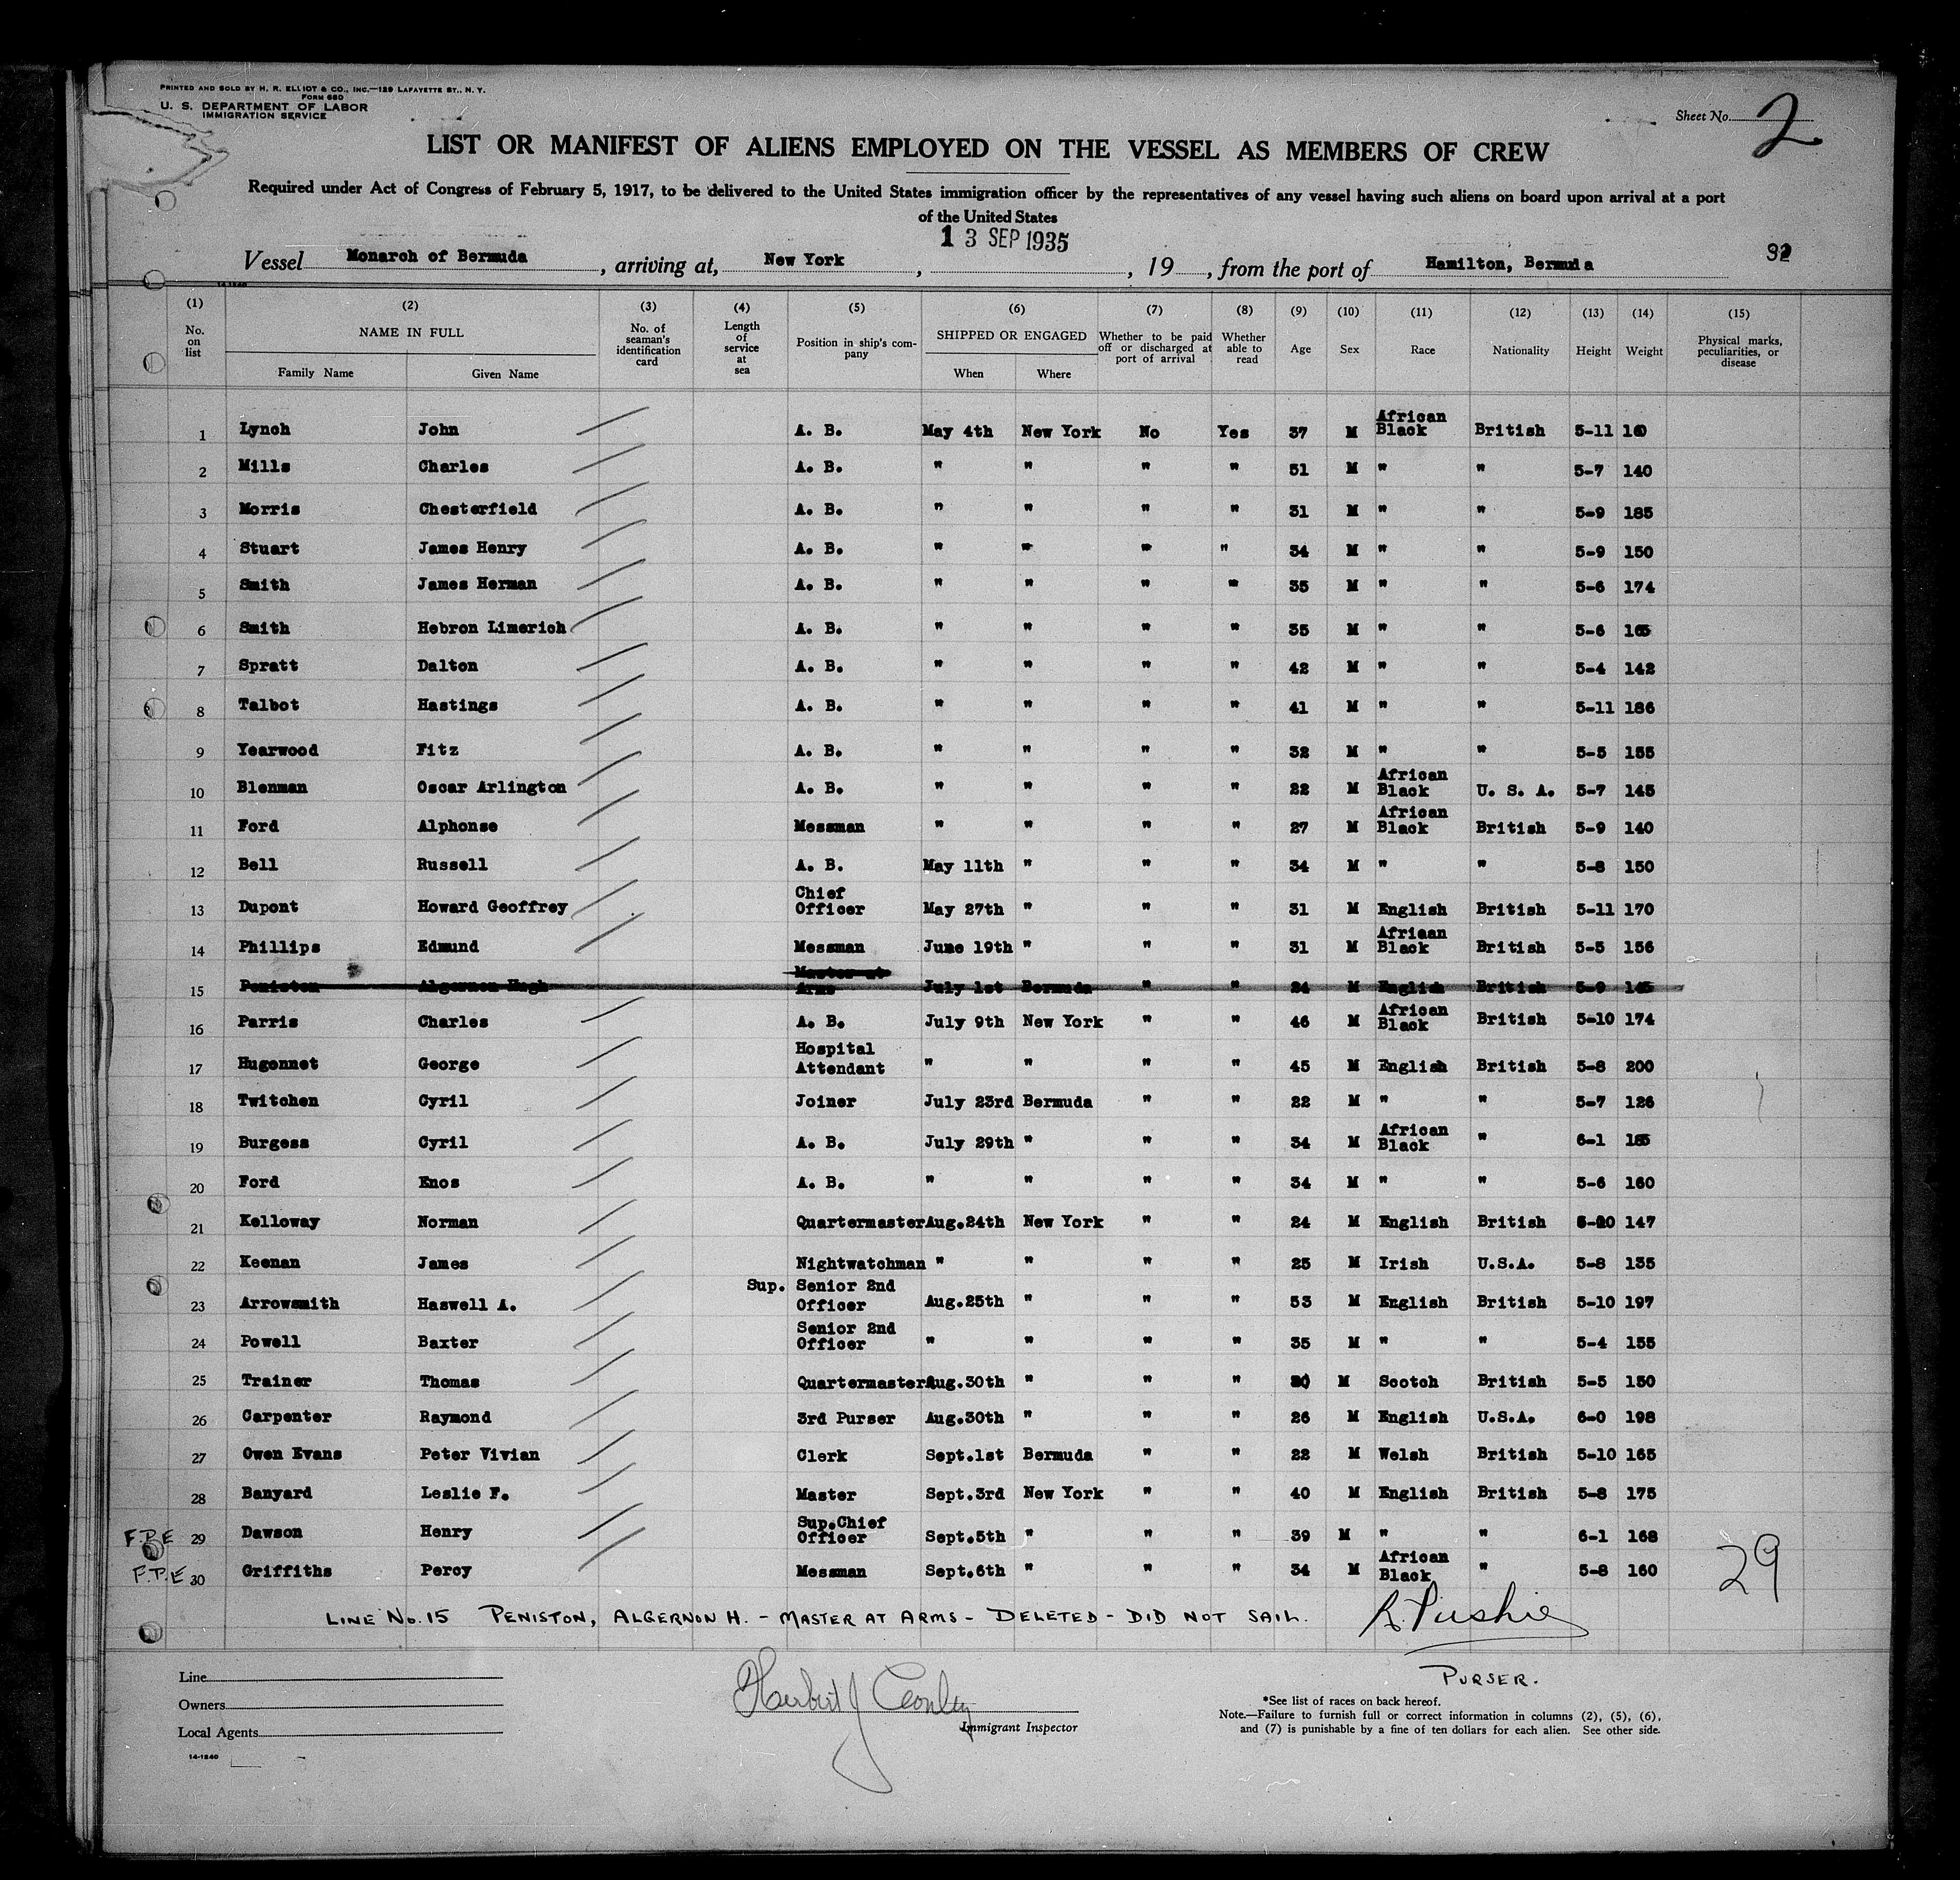 PRINTED AND SOLD BY H. R. ELLIOT & CO., INC.—129 LAFAYETTE ST., N. Y.
FORM 680
U. S. DEPARTMENT OF LABOR
IMMIGRATION SERVICE
Sheet No. 2
LIST OR MANIFEST OF ALIENS EMPLOYED ON THE VESSEL AS MEMBERS OF CREW
Required under Act of Congress of February 5, 1917, to be delivered to the United States immigration officer by the representatives of any vessel having such aliens on board upon arrival at a port
of the United States
13 SEP 1935
Vessel Monarch of Bermuda, arriving at, New York, , 19 , from the port of Hamilton, Bermuda
(1) (2) (3) (4) (5) (6) (7) (8) (9) (10) (11) (12) (13) (14) (15)
No. on list NAME IN FULL Family Name Given Name No. of seaman's identification card Length of service at sea Position in ship's company SHIPPED OR ENGAGED When Where Whether to be paid off or discharged at port of arrival Whether able to read Age Sex Race Nationality Height Weight Physical marks, peculiarities, or disease
1 Lynch John A. B. May 4th New York No Yes 37 M African Black British 5-11
2 Mills Charles A. B. " " " " 51 M " " 5-7 140
3 Morris Chesterfield A. B. " " " " 31 M " " 5-9 185
4 Stuart James Henry A. B. " " " " 34 M " " 5-9 150
5 Smith James Herman A. B. " " " " 35 M " " 5-6 174
6 Smith Hebron Limerich A. B. " " " " 35 M " " 5-6
7 Spratt Dalton A. B. " " " " 42 M " " 5-4 142
8 Talbot Hastings A. B. " " " " 41 M " " 5-11 186
9 Yearwood Fitz A. B. " " " " 32 M " " 5-5 155
10 Blenman Oscar Arlington A. B. " " " " 22 M African Black U. S. A. 5-7 145
11 Ford Alphonse Messman " " " " 27 M African Black British 5-9 140
12 Bell Russell A. B. May 11th " " " 34 M " " 5-8 150
13 Dupont Howard Geoffrey Chief Officer May 27th " " " 31 M English British 5-11 170
14 Phillips Edmund Messman June 19th " " " 31 M African Black British 5-5 156
15 Peniston Algernon Hugh Master at Arms July 1st Bermuda " " 24 M English British 5-9 145
16 Parris Charles A. B. July 9th New York " " 46 M African Black British 5-10 174
17 Hugonnet George Hospital Attendant " " " " 45 M English British 5-8 200
18 Twitchen Cyril Joiner July 23rd Bermuda " " 22 M " " 5-7 126
19 Burgess Cyril A. B. July 29th " " " 34 M African Black " 6-1
20 Ford Enos A. B. " " " " 34 M " " 5-6 160
21 Kelloway Norman Quartermaster Aug.24th New York " " 24 M English British 147
22 Keenan James Nightwatchman " " " " 25 M Irish U.S.A. 5-8 135
23 Arrowsmith Haswell A. Sup. Senior 2nd Officer Aug.25th " " " 53 M English British 5-10 197
24 Powell Baxter Senior 2nd Officer " " " " 35 M " " 5-4 155
25 Trainer Thomas Quartermaster Aug.30th " " " M Scotch British 5-5 150
26 Carpenter Raymond 3rd Purser Aug.30th " " " 26 M English U.S.A. 6-0 198
27 Owen Evans Peter Vivian Clerk Sept.1st Bermuda " " 22 M Welsh British 5-10 165
28 Banyard Leslie F. Master Sept.3rd New York " " 40 M English British 5-8 175
F.P.E 29 Dawson Henry Sup.Chief Officer Sept.5th " " " 39 M " " 6-1 168
F.P.E 30 Griffiths Percy Messman Sept.6th " " " 34 M African Black " 5-8 160
29
LINE No. 15 PENISTON, ALGERNON H. - MASTER AT ARMS - DELETED - DID NOT SAIL. R. Pushie
PURSER.
Line
Owners
Local Agents
14-1240
Herbert J
Immigrant Inspector
*See list of races on back hereof.
Note.—Failure to furnish full or correct information in columns (2), (5), (6),
and (7) is punishable by a fine of ten dollars for each alien. See other side.